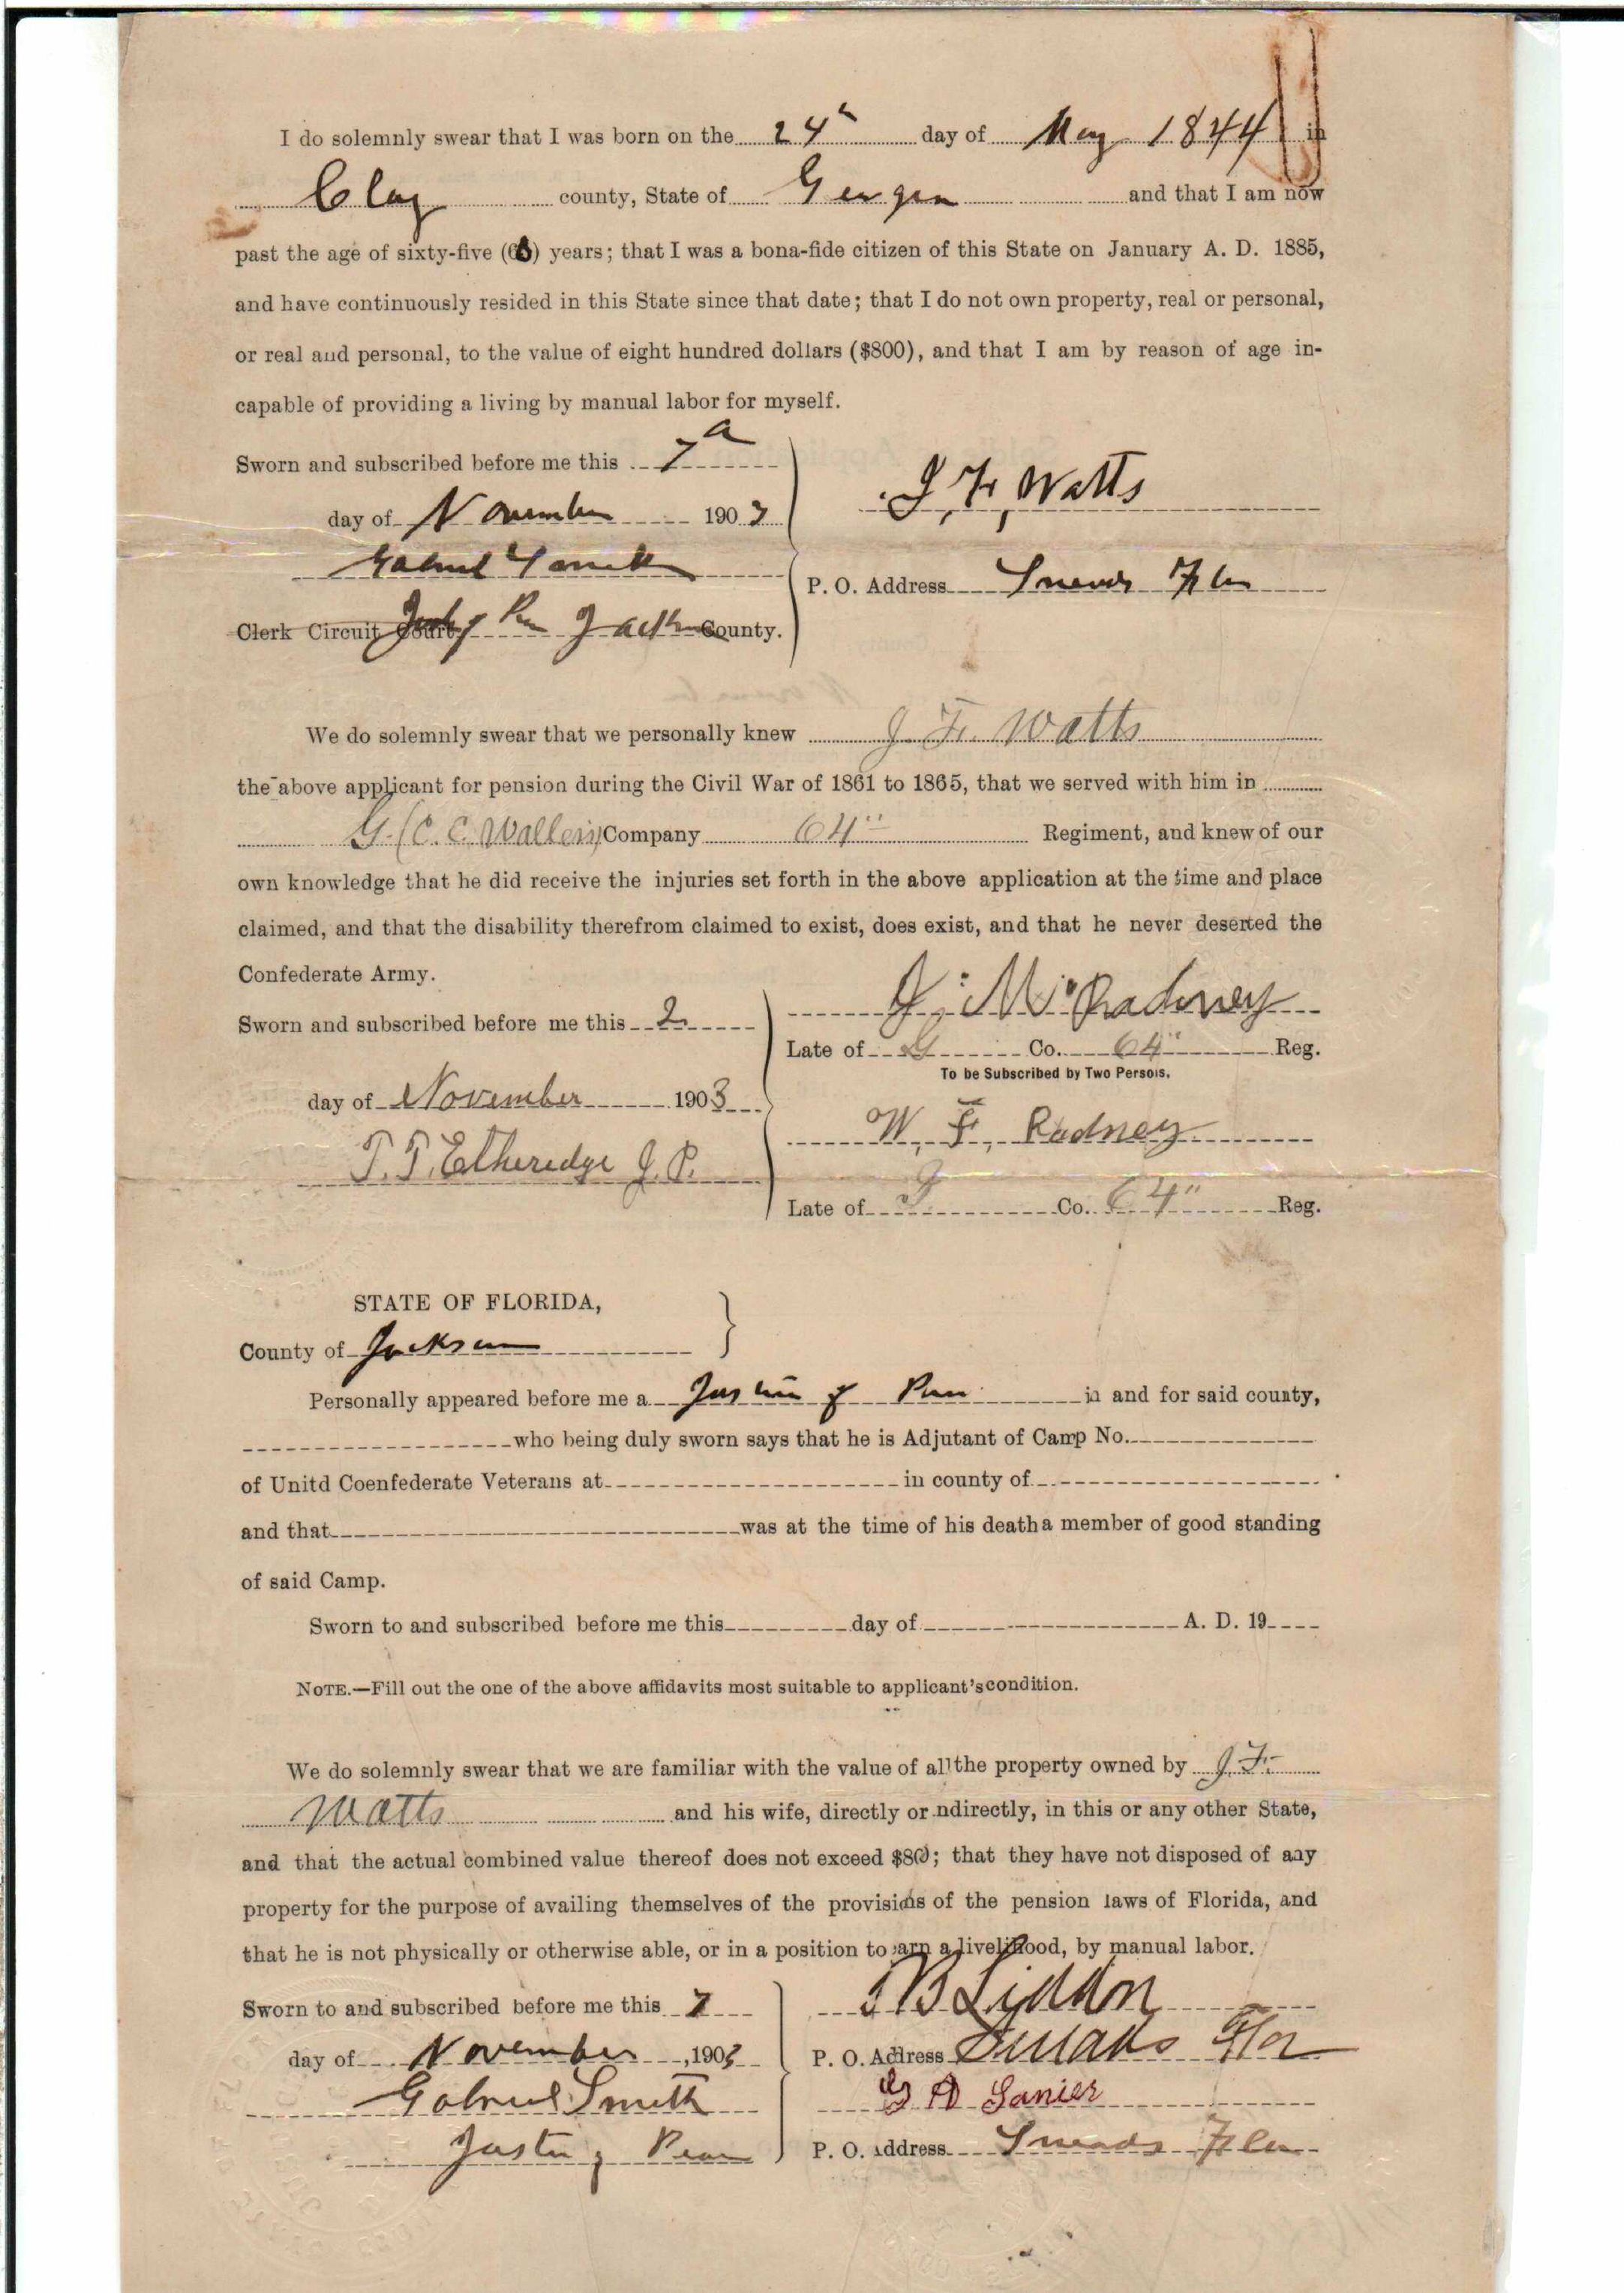 I do solemnly swear that I was born on the 24" day of May 1844 in
Clay county, State of Georgia and that I am now
past the age of sixty-five (66) years; that I was a bona-fide citizen of this State on January A. D. 1885,
and have continuously resided in this State since that date; that I do not own property, real or personal,
or real and personal, to the value of eight hundred dollars ($800), and that I am by reason of age in-
capable of providing a living by manual labor for myself.
Sworn and subscribed before me this 7
day of November 1903
Gabriel Smith
Clerk Circuit Court County.
J, F, Watts
P. O. Address Sneads Fla
We do solemnly swear that we personally knew J. F. Watts
the above applicant for pension during the Civil War of 1861 to 1865, that we served with him in
G. (C. C. Wallers) Company 64" Regiment, and knew of our
own knowledge that he did receive the injuries set forth in the above application at the time and place
claimed, and that the disability therefrom claimed to exist, does exist, and that he never deserted the
Confederate Army.
Sworn and subscribed before me this 2
day of November 1903
T. T. Etheredge J. P.
J. M. Radney
Late of G Co. 64" Reg.
To be Subscribed by Two Persois.
W, F, Radney
Late of G Co. 64" Reg.
STATE OF FLORIDA,
County of Jackson
Personally appeared before me a Justice of Peace in and for said county,
who being duly sworn says that he is Adjutant of Camp No.
of Unitd Coenfederate Veterans at in county of
and that was at the time of his death a member of good standing
of said Camp.
Sworn to and subscribed before me this day of A. D. 19
NOTE.—Fill out the one of the above affidavits most suitable to applicant's condition.
We do solemnly swear that we are familiar with the value of all the property owned by J. F.
Watts and his wife, directly or ndirectly, in this or any other State,
and that the actual combined value thereof does not exceed $800; that they have not disposed of any
property for the purpose of availing themselves of the provisions of the pension laws of Florida, and
that he is not physically or otherwise able, or in a position to earn a livelihood, by manual labor.
Sworn to and subscribed before me this 7
day of November, 1903
Gabriel Smith
Justice of Peace
B Liddon
P. O. Address Sneads Fla
G A Lanier
P. O. Address Sneads Fla